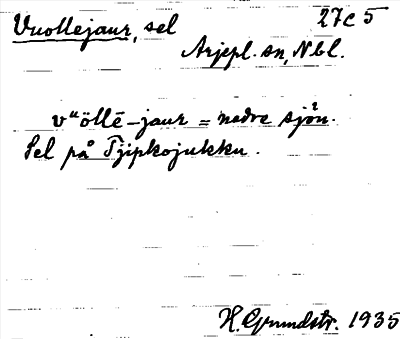 Vuollejaur, sel 27C5
Arjepl. sn, Nbl.
vuöllē-jaur = nedre sjön.
Sel på Tjipkojukku.
H. Grundstr. 1935